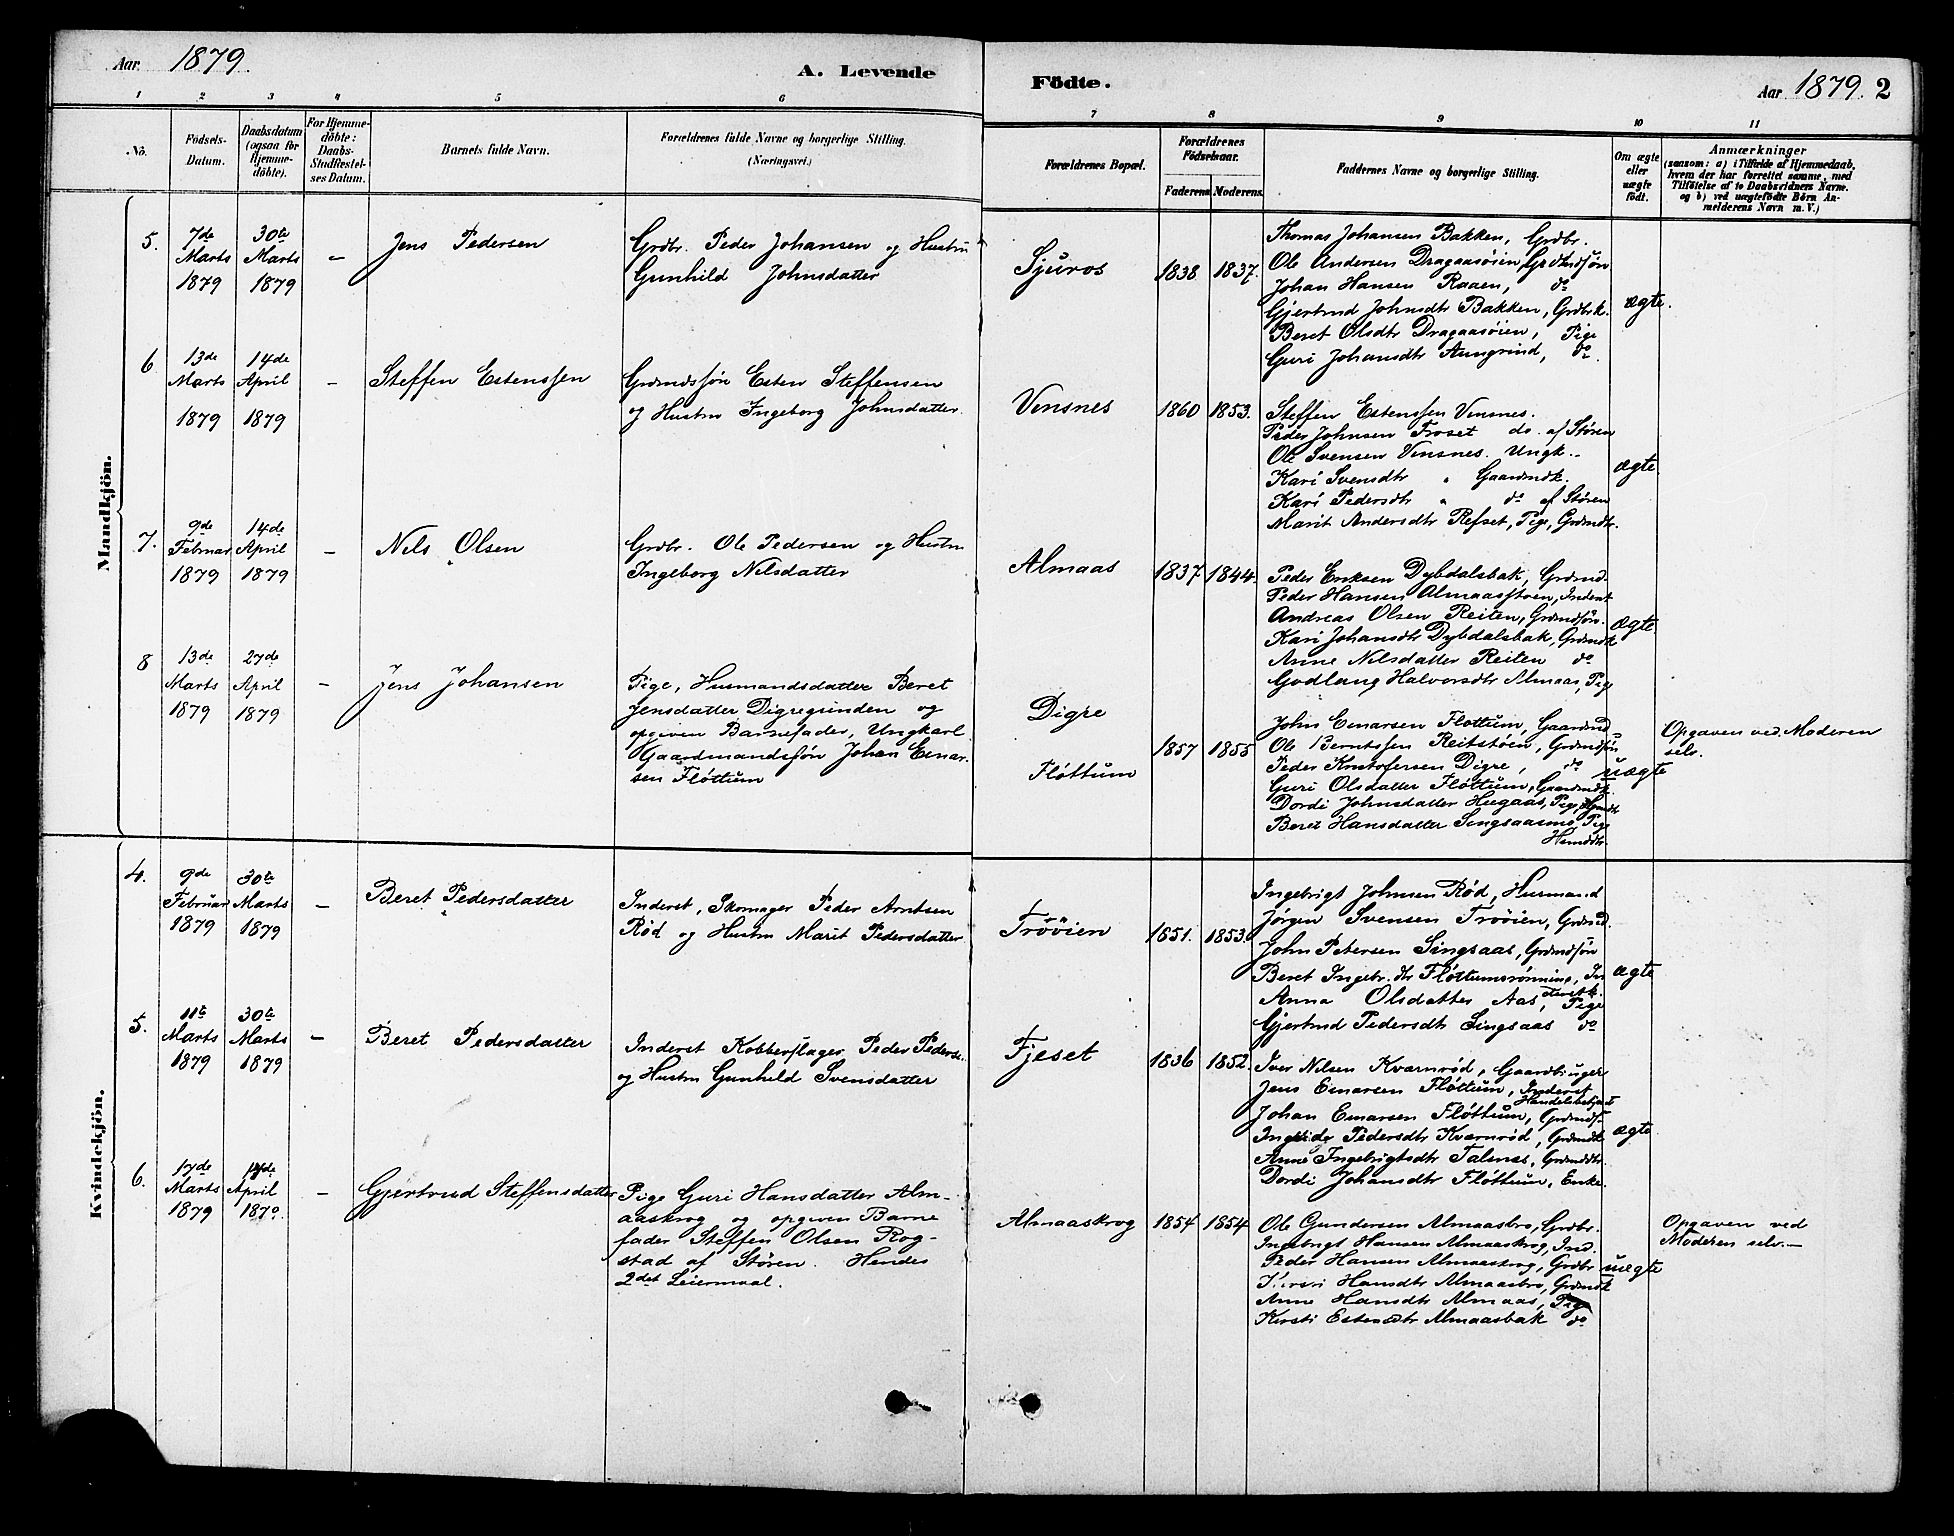 Aar 1879.
A. Levende
Födte.
Aar 1879. 2
1 2 3 4 5 6 7 8 9 10 11
No.
Födsels-
Datum.
Daabsdatum
(ogsaa for
Hjemme-
döbte).
For Hjemme-
döbte:
Daabs-
Stadfæstel-
ses Datum.
Barnets fulde Navn.
Forældrenes fulde Navne og borgerlige Stilling.
(Næringsvei.)
Forældrenes Bopæl.
Forældrenes
Födselsaar.
Faderens Moderens
Faddernes Navne og borgerlige Stilling.
Om ægte
eller
uægte
födt.
Anmærkninger
(saasom: a) i Tilfælde af Hjemmedaab,
hvem der har forrettet samme, med
Tilföielse af to Daabsvidners Navne.
og b) ved uægtefödte Börn An-
melderens Navn m.V.)
Mandkjön.
5.
7de
Marts
1879
30te
Marts
1879
–
Jens Pedersen
Grdbr. Peder Johansen og Hustru
Gunhild Johnsdatter
Sjuros
1838 1837.
Thomas Johansen Bakken, Grdbr.
Ole Andersen Dragaasöien, Grdmdsön
Johan Hansen Raaen, do
Gjertrud Johnsdtr Bakken, Grdbrk.
Beret Olsdtr Dragaasöien, Pige
Guri Johansdtr Aungrind, do.
ægte.
6
13de
Marts
1879
14de
April
1879
–
Steffen Estenssen
Grdmdssön Esten Steffensen
og Hustru Ingeborg Johnsdatter.
Vensnes
1860 1853.
Steffen Estenssen Vensnes.
Peder Johnsen Froset do. af Stören
Ole Svensen Vensnes. Ungk.
Kari Svensdtr " Gaardmdk.
Kari Pedersdtr " do af Stören
Marit Andersdtr Refset, Pige, Grdmdtr.
ægte
7.
9de
Februar
1879
14de
April
1879
–
Nils Olsen
Grdbr. Ole Pedersen og Hustru
Ingeborg Nilsdatter
Almaas
1837 1844.
Peder Eriksen Dybdalsbak, Grdmd.
Peder Hansen Almaasstöen, Inderst
Andreas Olsen Reiten, Grdmdsön.
Kari Johansdtr Dybdalsbak, Grdmdk
Anne Nilsdatter Reiten do
Godlaug Halvorsdtr Almaas, Pige
ægte
8
13de
Marts
1879
27de
April
1879
–
Jens Johansen
Pige, Husmandsdatter Beret
Jensdatter Digregrinden og
opgiven Barnefader, Ungkarl
Gaardmandssön Johan Einar-
sen Flöttum
Digre
Flöttum
1857 1855
John Einarsen Flöttum, Gaardmd
Ole Berntssen Reitstöen, Grdmdsön
Peder Kristofersen Digre, do
Guri Olsdatter Flöttum, Gaardmdk.
Dordi Johnsdatter Hugaas, Pige, Grdmdtr
Beret Hansdatter Singsaasmo Pige
Hsmddtr.
uægte
Opgaven ved Moderen
selv.
Kvindekjön.
4.
9de
Februar
1879
30te
Marts
1879
–
Beret Pedersdatter
Inderst, Skomager Peder Arntsen
Röd og Hustru Marit Pedersdatter
Trööien
1851. 1853.
Ingebrigt Johnsen Röd, Husmand
Jörgen Svensen Trööien, Grdmd.
John Petersen Singsaas, Grdmdsön
Beret Ingebr.dtr Flöttumsrönning, In
derstk.
Anna Olsdatter Aas, Pige
Gjertrud Pedersdtr Singsaas do
ægte
5.
11te
Marts
1879
30te
Marts
1879
–
Beret Pedersdatter
Inderst Kobberslager Peder Peders.
og Hustru Gunhild Svensdatter
Fjeset
1836 1852.
Iver Nilsen Kværnröd, Gaardbruger
Jens Einarsen Flöttum, Inderst
Handelsbetjent
Johan Einarsen Flöttum, Grdmdss.
Pedersdtr Kværnröd, Grdmdk
Anne Ingebrigtsdtr Talsnes, Grdmddtr.
Dordi Johansdtr Flöttum, Enke.
ægte
6.
17de
Marts
1879
14de
April
1879.
–
Gjertrud Steffensdatter
Pige Guri Hansdatter Alm-
aaskrog og opgiven Barne
fader Steffen Olsen Rog-
stad af Stören. Hendes
2det Leiermaal.
Almaaskrog
1854 1854
Ole Gundersen Almaasbro, Grdbr.
Ingebrigt Hansen Almaaskrog, Ind.
Peder Hansen Almaaskrog, Grdbr
Kersti Hansdtr Almaasbro, Grdmdk
Anne Hansdtr Almaas, Pige
Kersti Estensdtr Almaasbak do
uægte
Opgaven ved
Moderen selv.—